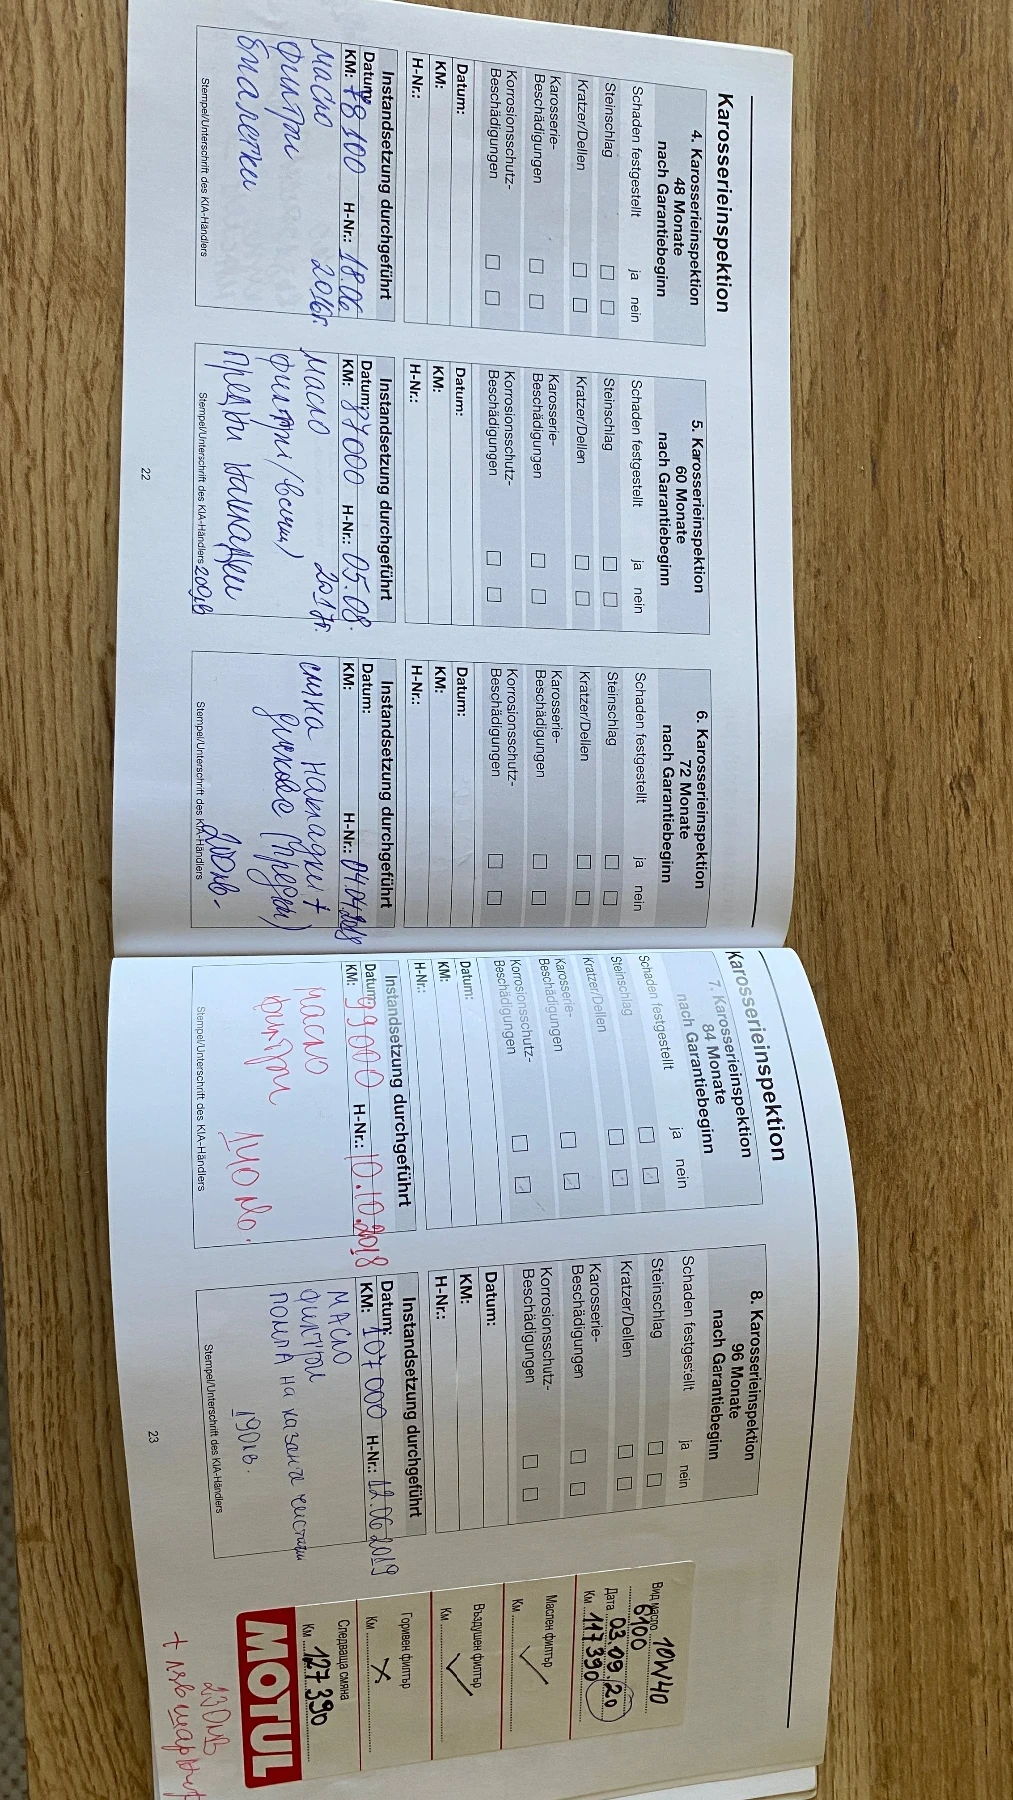 Karosserieinspektion
4. Karosserieinspektion
48 Monate
nach Garantiebeginn
Schaden festgestellt ja nein
Steinschlag
Kratzer/Dellen
Karosserie-
Beschädigungen
Korrosionsschutz-
Beschädigungen
Datum:
KM:
H-Nr.:
Instandsetzung durchgeführt
Datum:
KM: 78100 H-Nr.: 18.06.
масло 2016г.
филтри
биалетки
Stempel/Unterschrift des KIA-Händlers
5. Karosserieinspektion
60 Monate
nach Garantiebeginn
Schaden festgestellt ja nein
Steinschlag
Kratzer/Dellen
Karosserie-
Beschädigungen
Korrosionsschutz-
Beschädigungen
Datum:
KM:
H-Nr.:
Instandsetzung durchgeführt
Datum:
KM: 87000 H-Nr.: 05.08.
масло 2017г.
филтри (всички)
предни накладки
Stempel/Unterschrift des KIA-Händlers 200лв
6. Karosserieinspektion
72 Monate
nach Garantiebeginn
Schaden festgestellt ja nein
Steinschlag
Kratzer/Dellen
Karosserie-
Beschädigungen
Korrosionsschutz-
Beschädigungen
Datum:
KM:
H-Nr.:
Instandsetzung durchgeführt
Datum:
KM: H-Nr.: 04.04.2018
смяна накладки +
дискове (предни)
200лв.
Stempel/Unterschrift des KIA-Händlers
22
Karosserieinspektion
7. Karosserieinspektion
84 Monate
nach Garantiebeginn
Schaden festgestellt ja nein
Steinschlag
Kratzer/Dellen
Karosserie-
Beschädigungen
Korrosionsschutz-
Beschädigungen
Datum:
KM:
H-Nr.:
Instandsetzung durchgeführt
Datum:
KM: 99000 H-Nr.: 10.10.2018
масло
филтри
140лв.
Stempel/Unterschrift des KIA-Händlers
8. Karosserieinspektion
96 Monate
nach Garantiebeginn
Schaden festgestellt ja nein
Steinschlag
Kratzer/Dellen
Karosserie-
Beschädigungen
Korrosionsschutz-
Beschädigungen
Datum:
KM:
H-Nr.:
Instandsetzung durchgeführt
Datum:
KM: 107000 H-Nr.: 12.06.2019
масло
филтри
помпа на казанче чистачки
190лв.
Stempel/Unterschrift des KIA-Händlers
23
Вид масло 10W40
6100
Дата 03.09.20
Км 117390
Маслен филтър
Км
Въздушен филтър
Км
Горивен филтър
Км
Следваща смяна
Км 127390
MOTUL
230лв
+ ляв